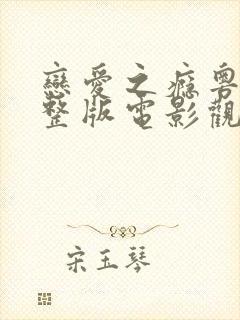 戀愛之癮粵
整版電影觀
宋玉琴